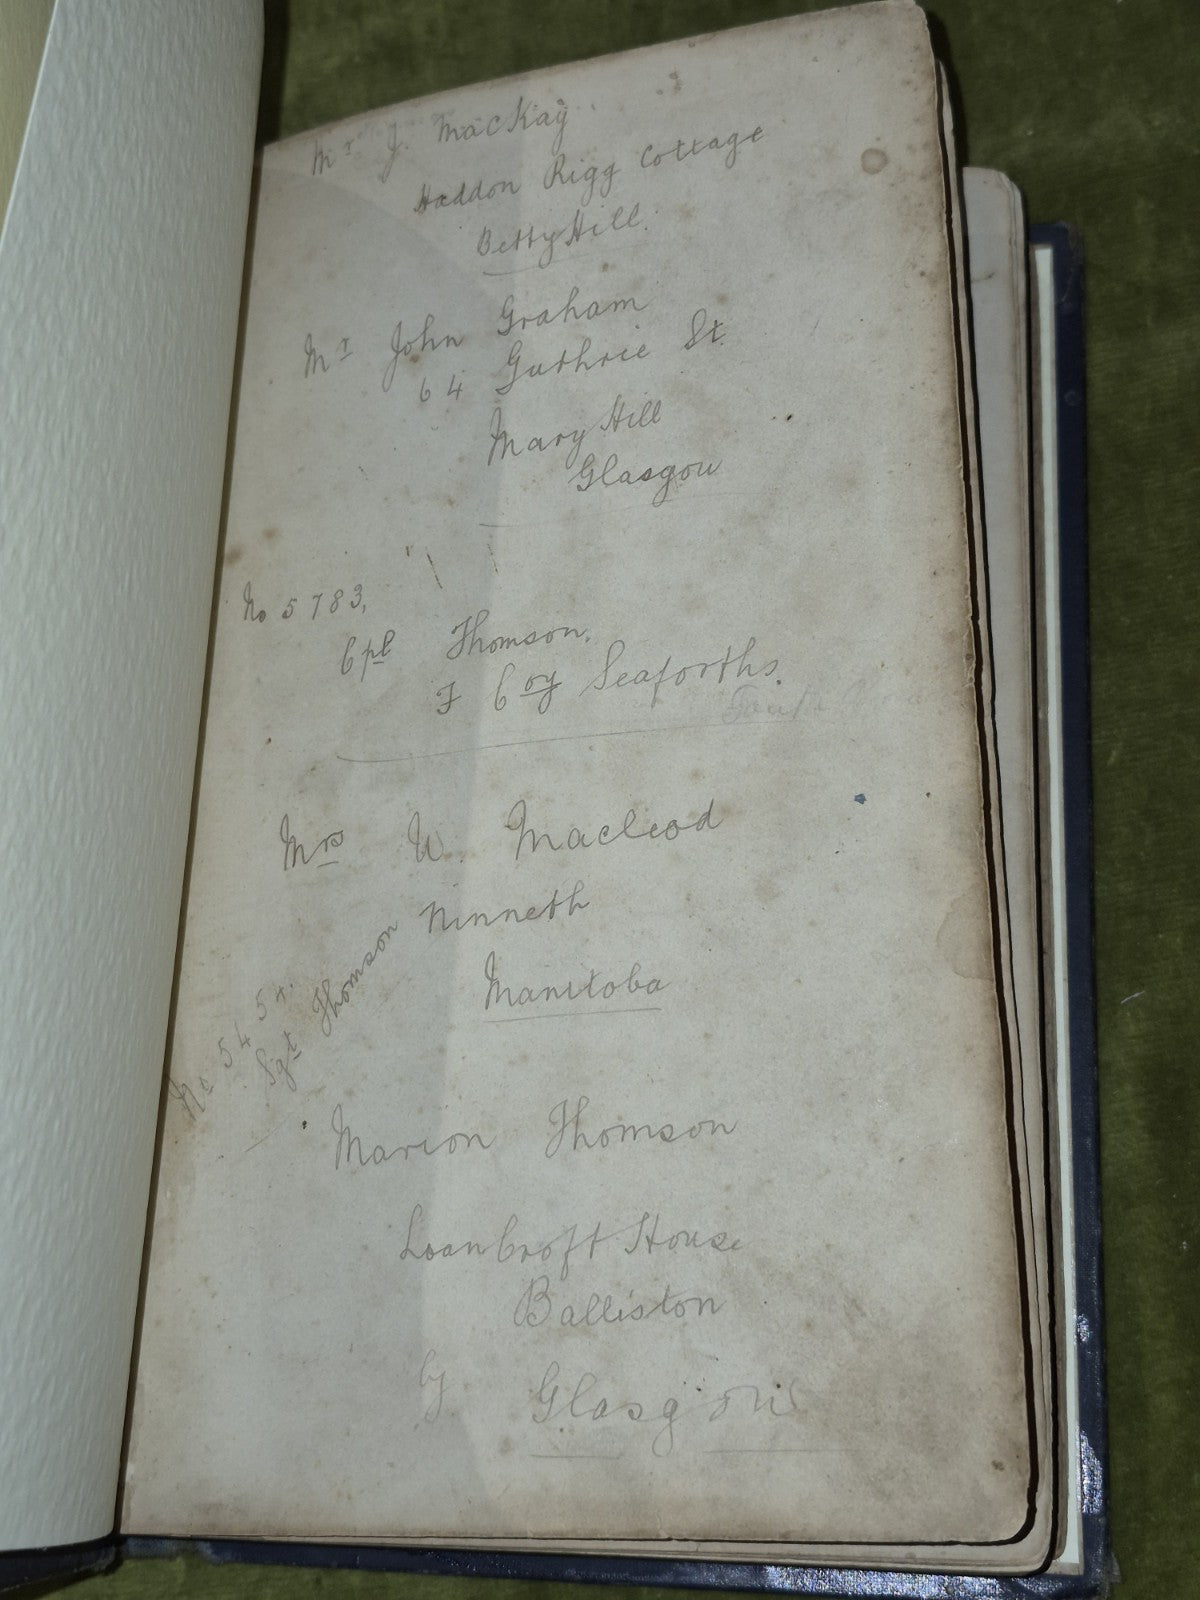 Mr J. MacKay
Haddon Rigg Cottage
BettyHill.
Mr John Graham
64 Guthrie St.
MaryHill
Glasgow
No 5783,
Cpl Thomson.
F Coy Seaforths.
Mrs W. Macleod
Ninneth
Manitoba
No 545
Sgt Thomson
Marion Thomson
LoanCroft House
Balliston
by Glasgow